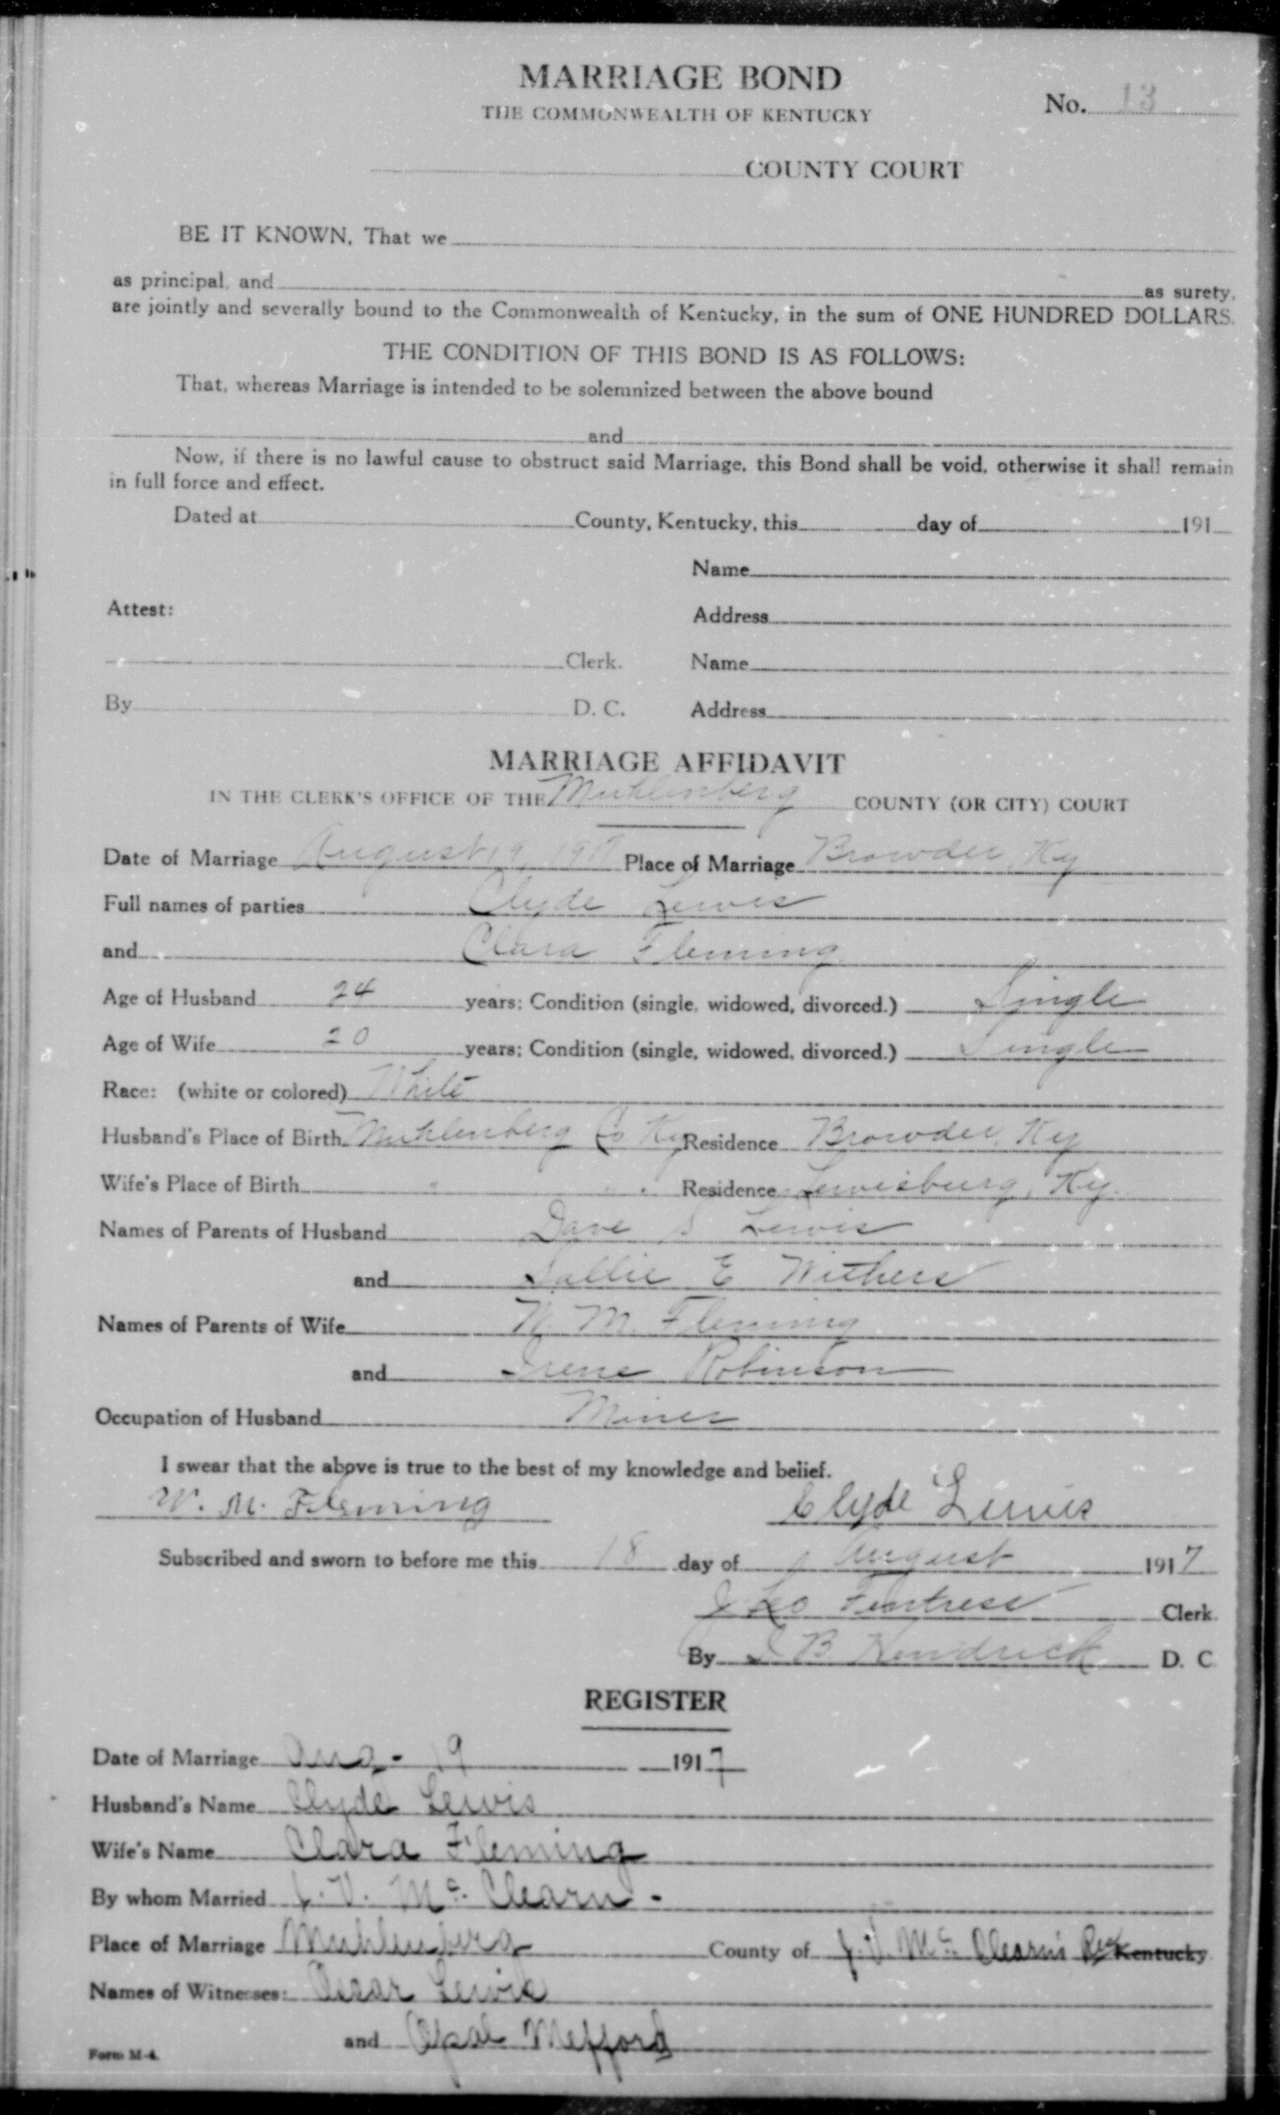 MARRIAGE BOND
THE COMMONWEALTH OF KENTUCKY
No. 13
COUNTY COURT
BE IT KNOWN, That we
as principal, and as surety,
are jointly and severally bound to the Commonwealth of Kentucky, in the sum of ONE HUNDRED DOLLARS.
THE CONDITION OF THIS BOND IS AS FOLLOWS:
That, whereas Marriage is intended to be solemnized between the above bound
and
Now, if there is no lawful cause to obstruct said Marriage, this Bond shall be void, otherwise it shall remain
in full force and effect.
Dated at County, Kentucky, this day of 191
Name
Attest: Address
Clerk. Name
By D. C. Address
MARRIAGE AFFIDAVIT
IN THE CLERK'S OFFICE OF THE Muhlenberg COUNTY (OR CITY) COURT
Date of Marriage August 19, 1917 Place of Marriage Browder, Ky
Full names of parties Clyde Lewis
and Clara Fleming
Age of Husband 24 years; Condition (single, widowed, divorced.) Single
Age of Wife 20 years; Condition (single, widowed, divorced.) Single
Race: (white or colored) White
Husband's Place of Birth Muhlenberg Co Ky Residence Browder, Ky
Wife's Place of Birth " " " Residence Lewisburg, Ky.
Names of Parents of Husband Dave S Lewis
and Sallie E Withers
Names of Parents of Wife W. M. Fleming
and Irene Robinson
Occupation of Husband Miner
I swear that the above is true to the best of my knowledge and belief.
W. M. Fleming Clyde Lewis
Subscribed and sworn to before me this 18 day of August 1917
J Leo Fentress Clerk.
By J B Hendrick D. C.
REGISTER
Date of Marriage Aug - 19 1917
Husband's Name Clyde Lewis
Wife's Name Clara Fleming
By whom Married J. V. Mc Clearn -
Place of Marriage Muhlenberg County of J. V. Mc Clearn's Res Kentucky
Names of Witnesses: Oscar Lewis
and Opal Mefford
Form M-4.